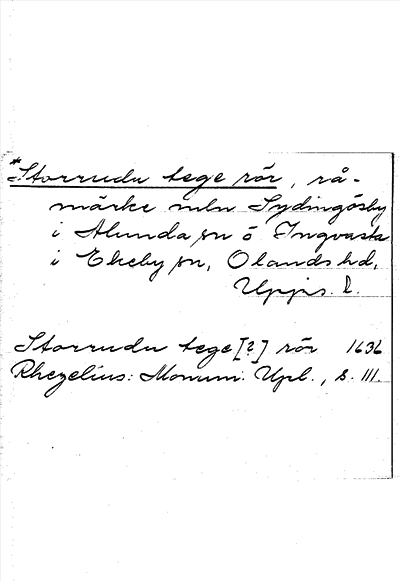 *Storrudu tege rör, rå-
märke mln Sydingösby
i Alunda sn o Ingvasta
i Ekeby sn, Olands hd,
Uppl.
Storrudu tege [?] rör 1636
Rhezelius: Monum. Upl., s. 111.